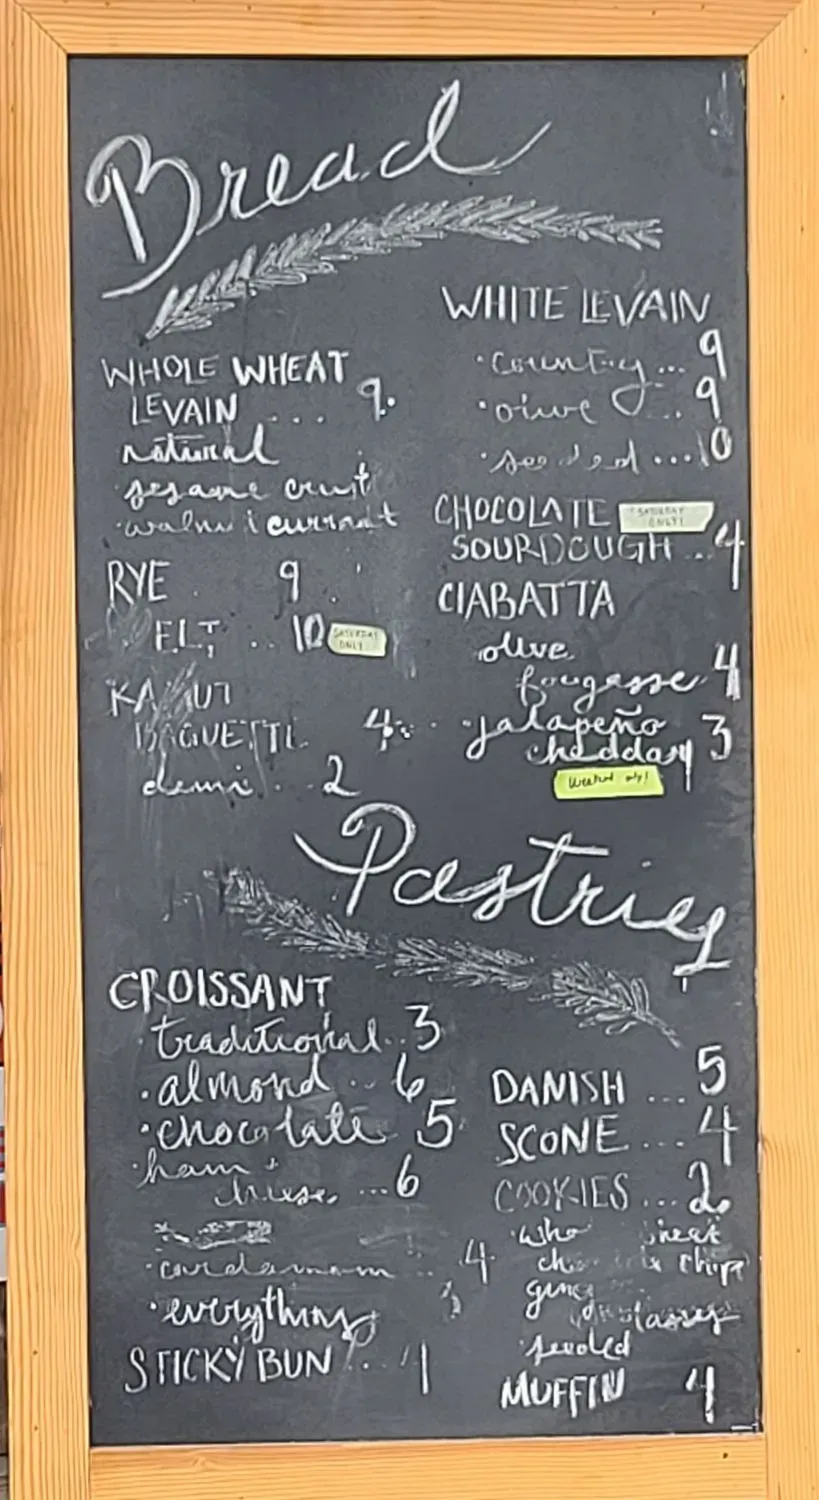 Bread
WHOLE WHEAT
LEVAIN ... 9.
natural
sesame crust
·walnut currant
RYE . 9
F.L.T. .. 10 SATURDAY
ONLY!
KAMUT
BAGUETTE 4
demi .. 2
WHITE LEVAIN
·country... 9
·olive ... 9
·seeded ...10
CHOCOLATE SATURDAY
ONLY!
SOURDOUGH ... 4
CIABATTA
olive
fougasse 4
·jalapeño 3
cheddar
Weekend only!
Pastries
CROISSANT
·traditional.. 3
·almond .. 6
·chocolate 5
·ham +
cheese ... 6
·cardamom .. 4
·everything 3
STICKY BUN ...
DANISH ... 5
SCONE ... 4
COOKIES ... 2
·whole wheat
chocolate chip
ginger
molasses
seeded
MUFFIN 4